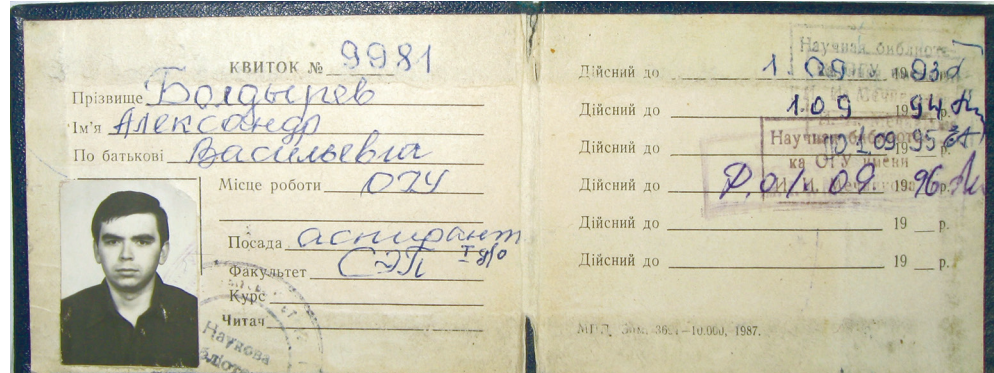 КВИТОК № 9981
Прізвище Болдырев
Ім'я Александр
По батькові Васильевич
Місце роботи ОГУ
Посада аспирант
Факультет СЭП
Курс
Читач
Наукова
Дійсний до 1.09 1993
Дійсний до 1.09 1994
Дійсний до 01.09 1995 р.
Дійсний до 01.09 1996 р.
Дійсний до 19 р.
Дійсний до 19 р.
Научная библиоте-
ка ОГУ имени
И. И. Мечникова
Научная библиоте-
ка ОГУ имени
И. И. Мечникова
–10.000, 1987.